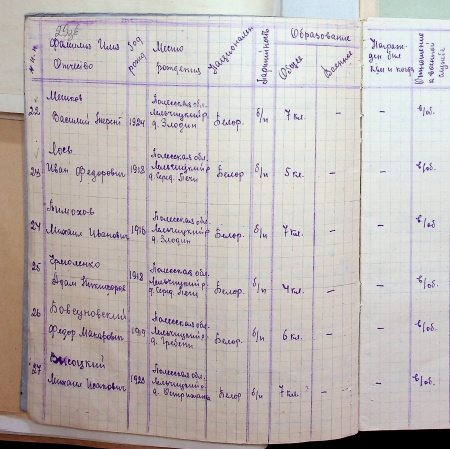 № п.п.
Фамилия Имя
Отчество
Год
рожд
Место
рождения
Национальн
Партийность
Образование
Общее
Военное
Награж-
ден был
кем и когда
Отношение
к военной
службе
22
Мешков
Василий
1924
Полесская обл.
Лельчицкий р
д. Злодин
Белор.
б/п
7 кл.
–
–
в/об.
23
Лось
Иван Федорович
1918
Полесская обл.
Лельчицкий р
д. Серед. Печи
Белор
б/п
5 кл.
–
–
в/об.
24
Тимохов
Михаил Иванович
1916
Полесская обл.
Лельчицкий р
д. Злодин
Белор.
б/п
7 кл.
–
–
в/об.
25
Ермоленко
Адам
1918
Полесская обл.
Лельчицкий р.
д. Серед. Печи
Белор.
б/п
4 кл.
–
–
в/об.
26
Бовсуновский
Федор Макарович
1919
Полесская обл.
Лельчицкий р.
д. Гребени
Белор.
б/п
6 кл.
–
–
в/об.
27
Высоцкий
Михаил Иванович
Полесская обл.
Лельчицкий р.
д.
Белор
б/п
7 кл.
–
–
в/об.